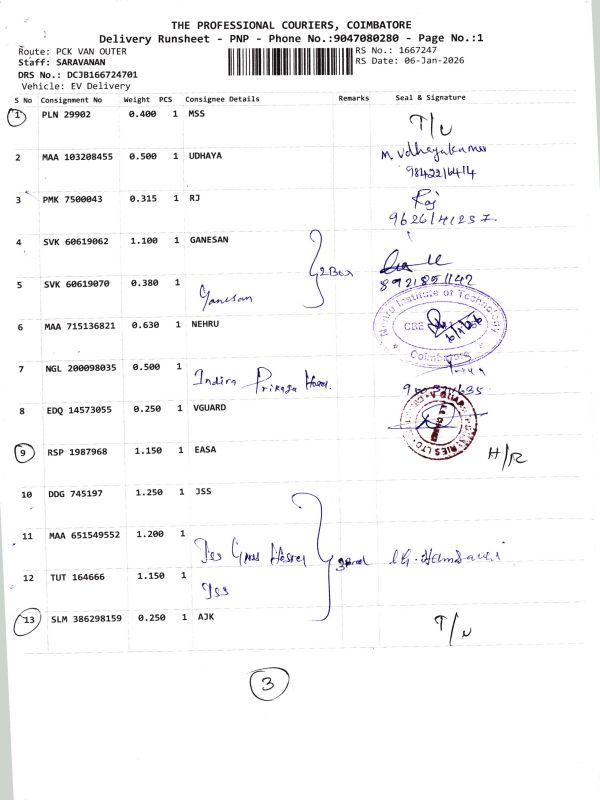 THE PROFESSIONAL COURIERS, COIMBATORE
Delivery Runsheet - PNP - Phone No.:9047080280 - Page No.:1
Route: PCK VAN OUTER
Staff: SARAVANAN
DRS No.: DCJB166724701
Vehicle: EV Delivery
RS No.: 1667247
RS Date: 06-Jan-2026
S No Consignment No Weight PCS Consignee Details Remarks Seal & Signature
1 PLN 29902 0.400 1 MSS T/L
2 MAA 103208455 0.500 1 UDHAYA M. Udhayakumar
3 PMK 7500043 0.315 1 RJ Raj
4 SVK 60619062 1.100 1 GANESAN 2 Box
5 SVK 60619070 0.380 1 Ganesan 8921851142
6 MAA 715136821 0.630 1 NEHRU
Nehru Institute of Technology
CBE
Coimbatore
7 NGL 200098035 0.500 1 Indira
8 EDQ 14573055 0.250 1 VGUARD
9 RSP 1987968 1.150 1 EASA H/R
10 DDG 745197 1.250 1 JSS
11 MAA 651549552 1.200 1
12 TUT 164666 1.150 1 Jss
13 SLM 386298159 0.250 1 AJK T/L
3